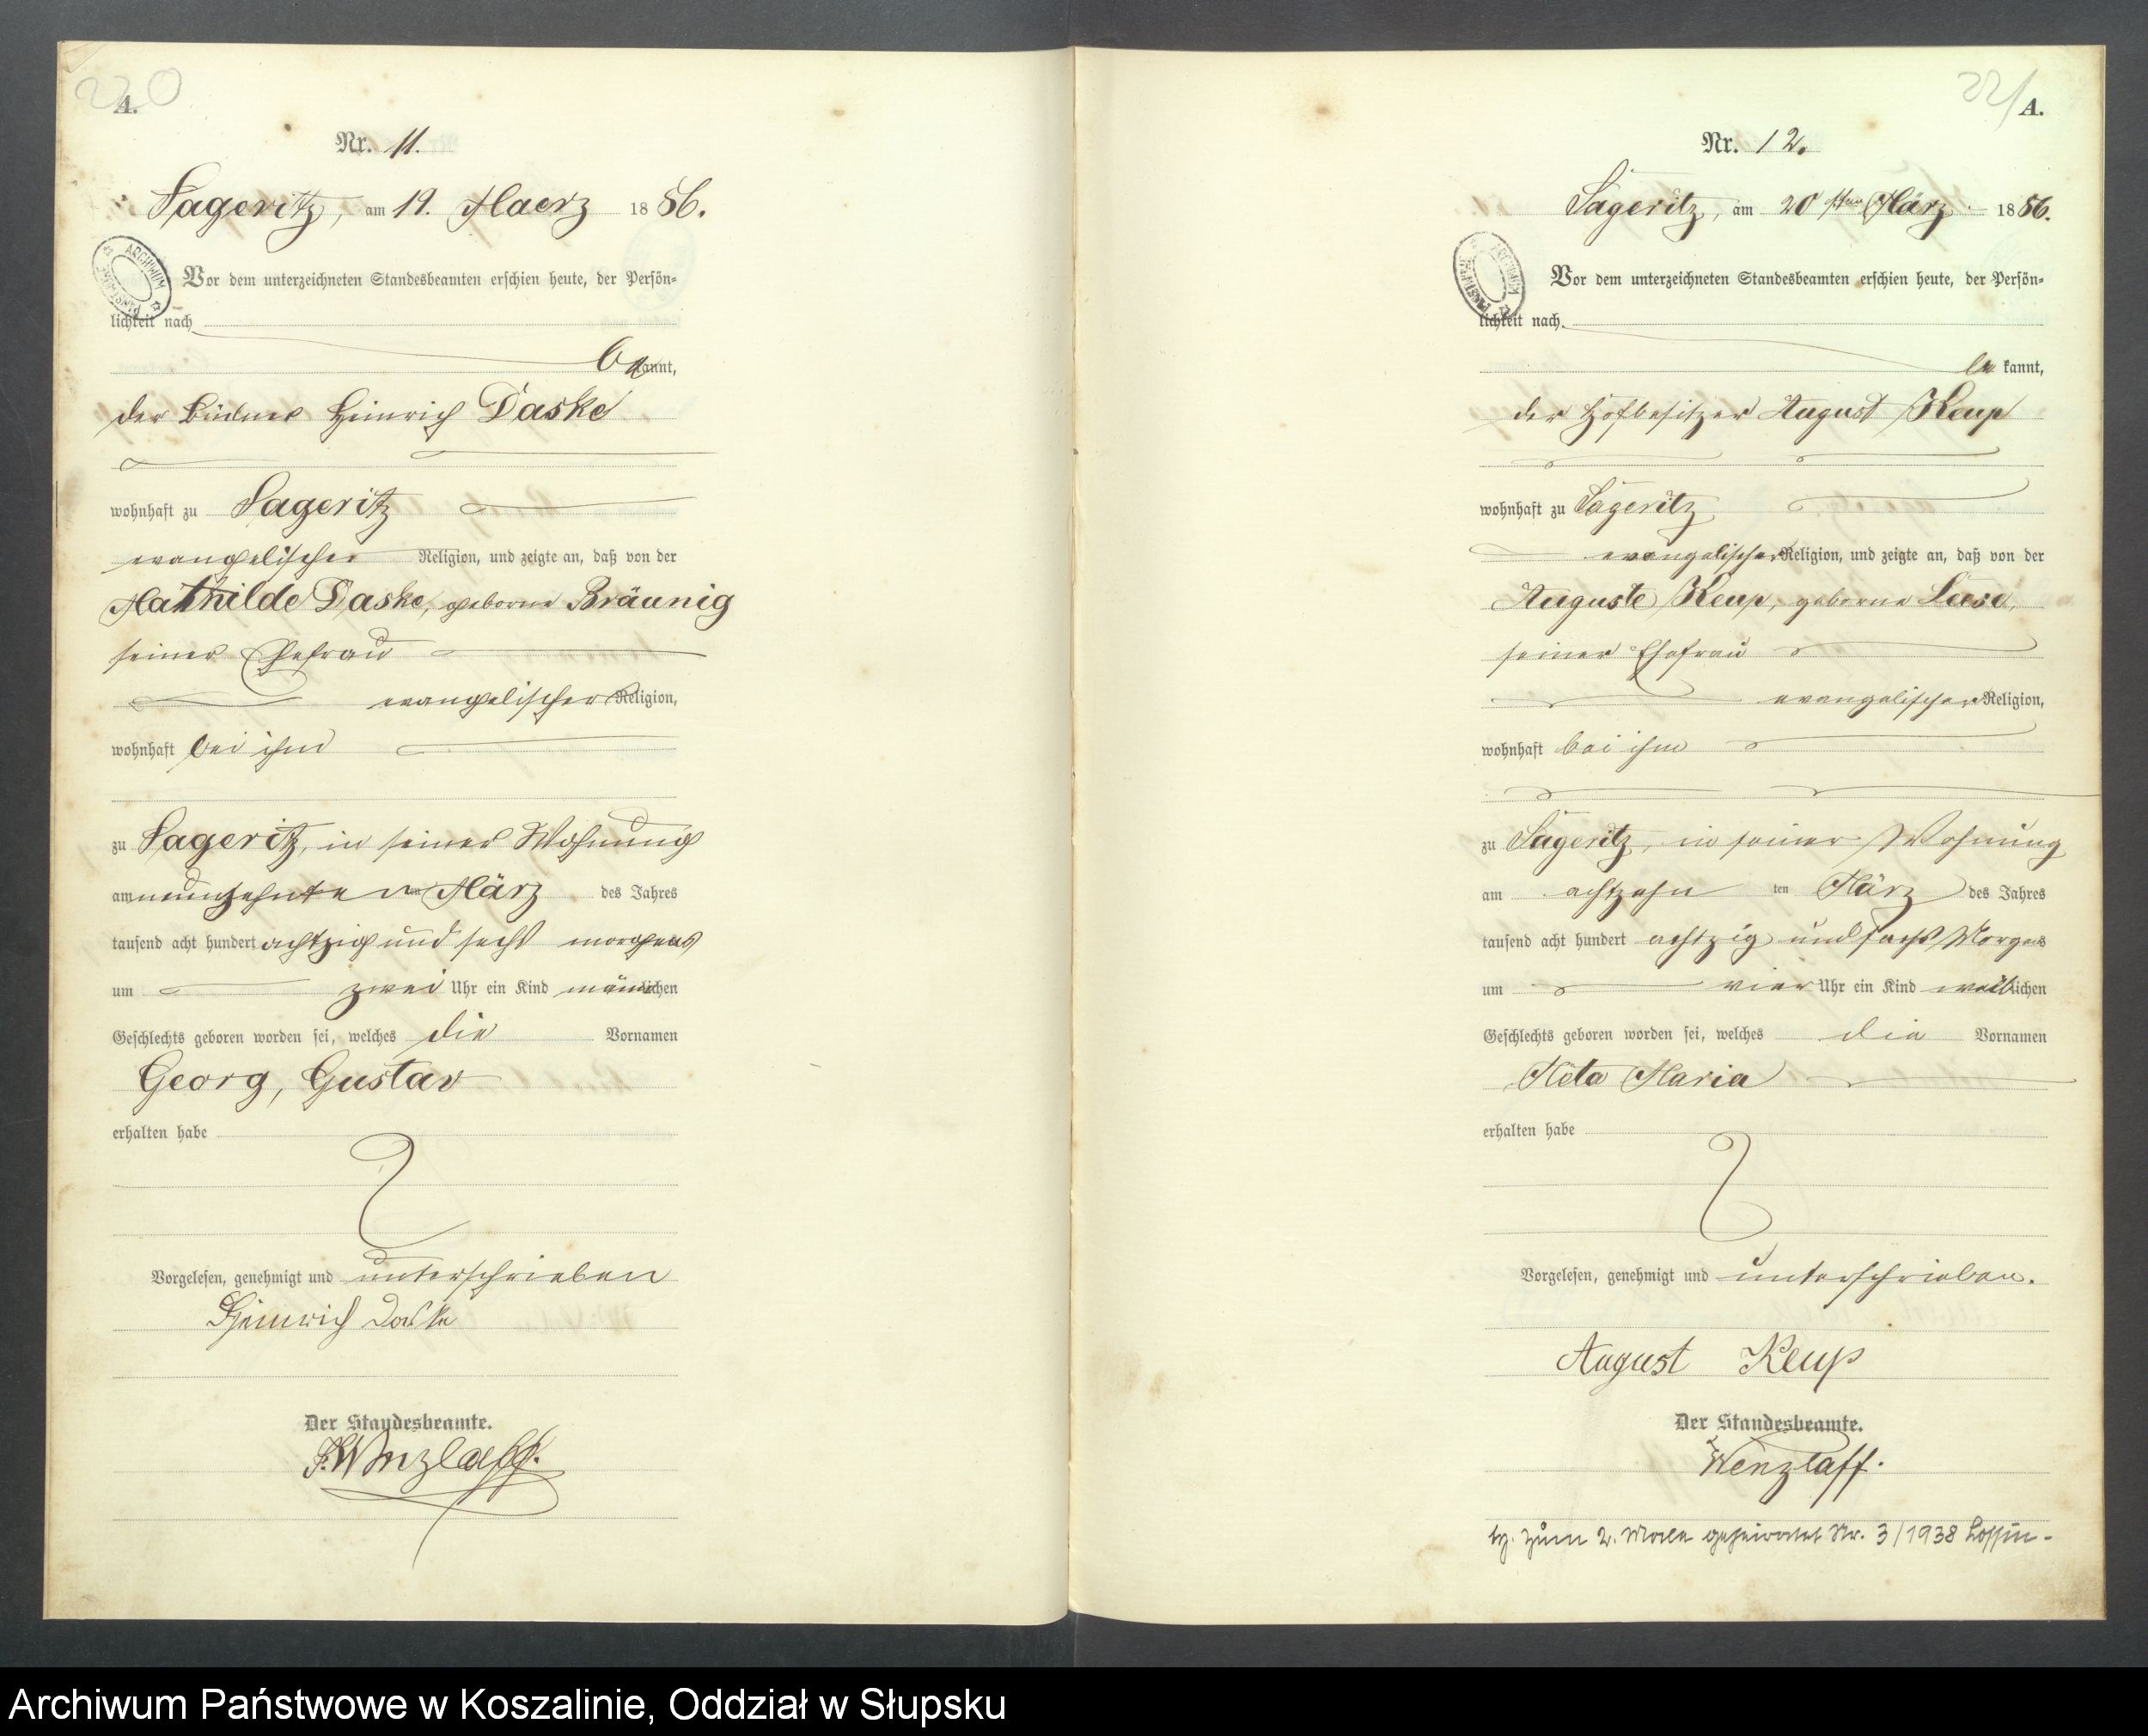 220
A.
Nr. 11.
Sageritz, am 19. Maerz 1886.
ARCHIWUM PAŃSTWOWE
Vor dem unterzeichneten Standesbeamten erschien heute, der Persön-
lichkeit nach
bekannt,
der Büdner Heinrich Daske
wohnhaft zu Sageritz
evangelischer Religion, und zeigte an, daß von der
Mathilde Daske, geborne Bräunig
seiner Ehefrau
evangelischer Religion,
wohnhaft bei ihm
zu Sageritz, in seiner Wohnung
am neunzehnten ten März des Jahres
tausend acht hundert achtzig und sechs morgens
um zwei Uhr ein Kind männlichen
Geschlechts geboren worden sei, welches die Vornamen
Georg, Gustav
erhalten habe
Vorgelesen, genehmigt und unterschrieben
Heinrich Daske
Der Standesbeamte.
F. Wenzlaff.
221
A.
Nr. 12.
Sageritz, am 20sten März 1886.
ARCHIWUM PAŃSTWOWE
Vor dem unterzeichneten Standesbeamten erschien heute, der Persön-
lichkeit nach
bekannt,
der Hofbesitzer August Keup
wohnhaft zu Sageritz
evangelischer Religion, und zeigte an, daß von der
Auguste Keup, geborne Leese,
seiner Ehefrau
evangelischer Religion,
wohnhaft bei ihm
zu Sageritz, in seiner Wohnung
am achtzehn ten März des Jahres
tausend acht hundert achtzig und sechs Morgens
um vier Uhr ein Kind weiblichen
Geschlechts geboren worden sei, welches die Vornamen
Meta Maria
erhalten habe
Vorgelesen, genehmigt und unterschrieben.
August Keup
Der Standesbeamte.
Wenzlaff.
zum 2. Male geheiratet Nr. 3/1938 Lossin-
Archiwum Państwowe w Koszalinie, Oddział w Słupsku